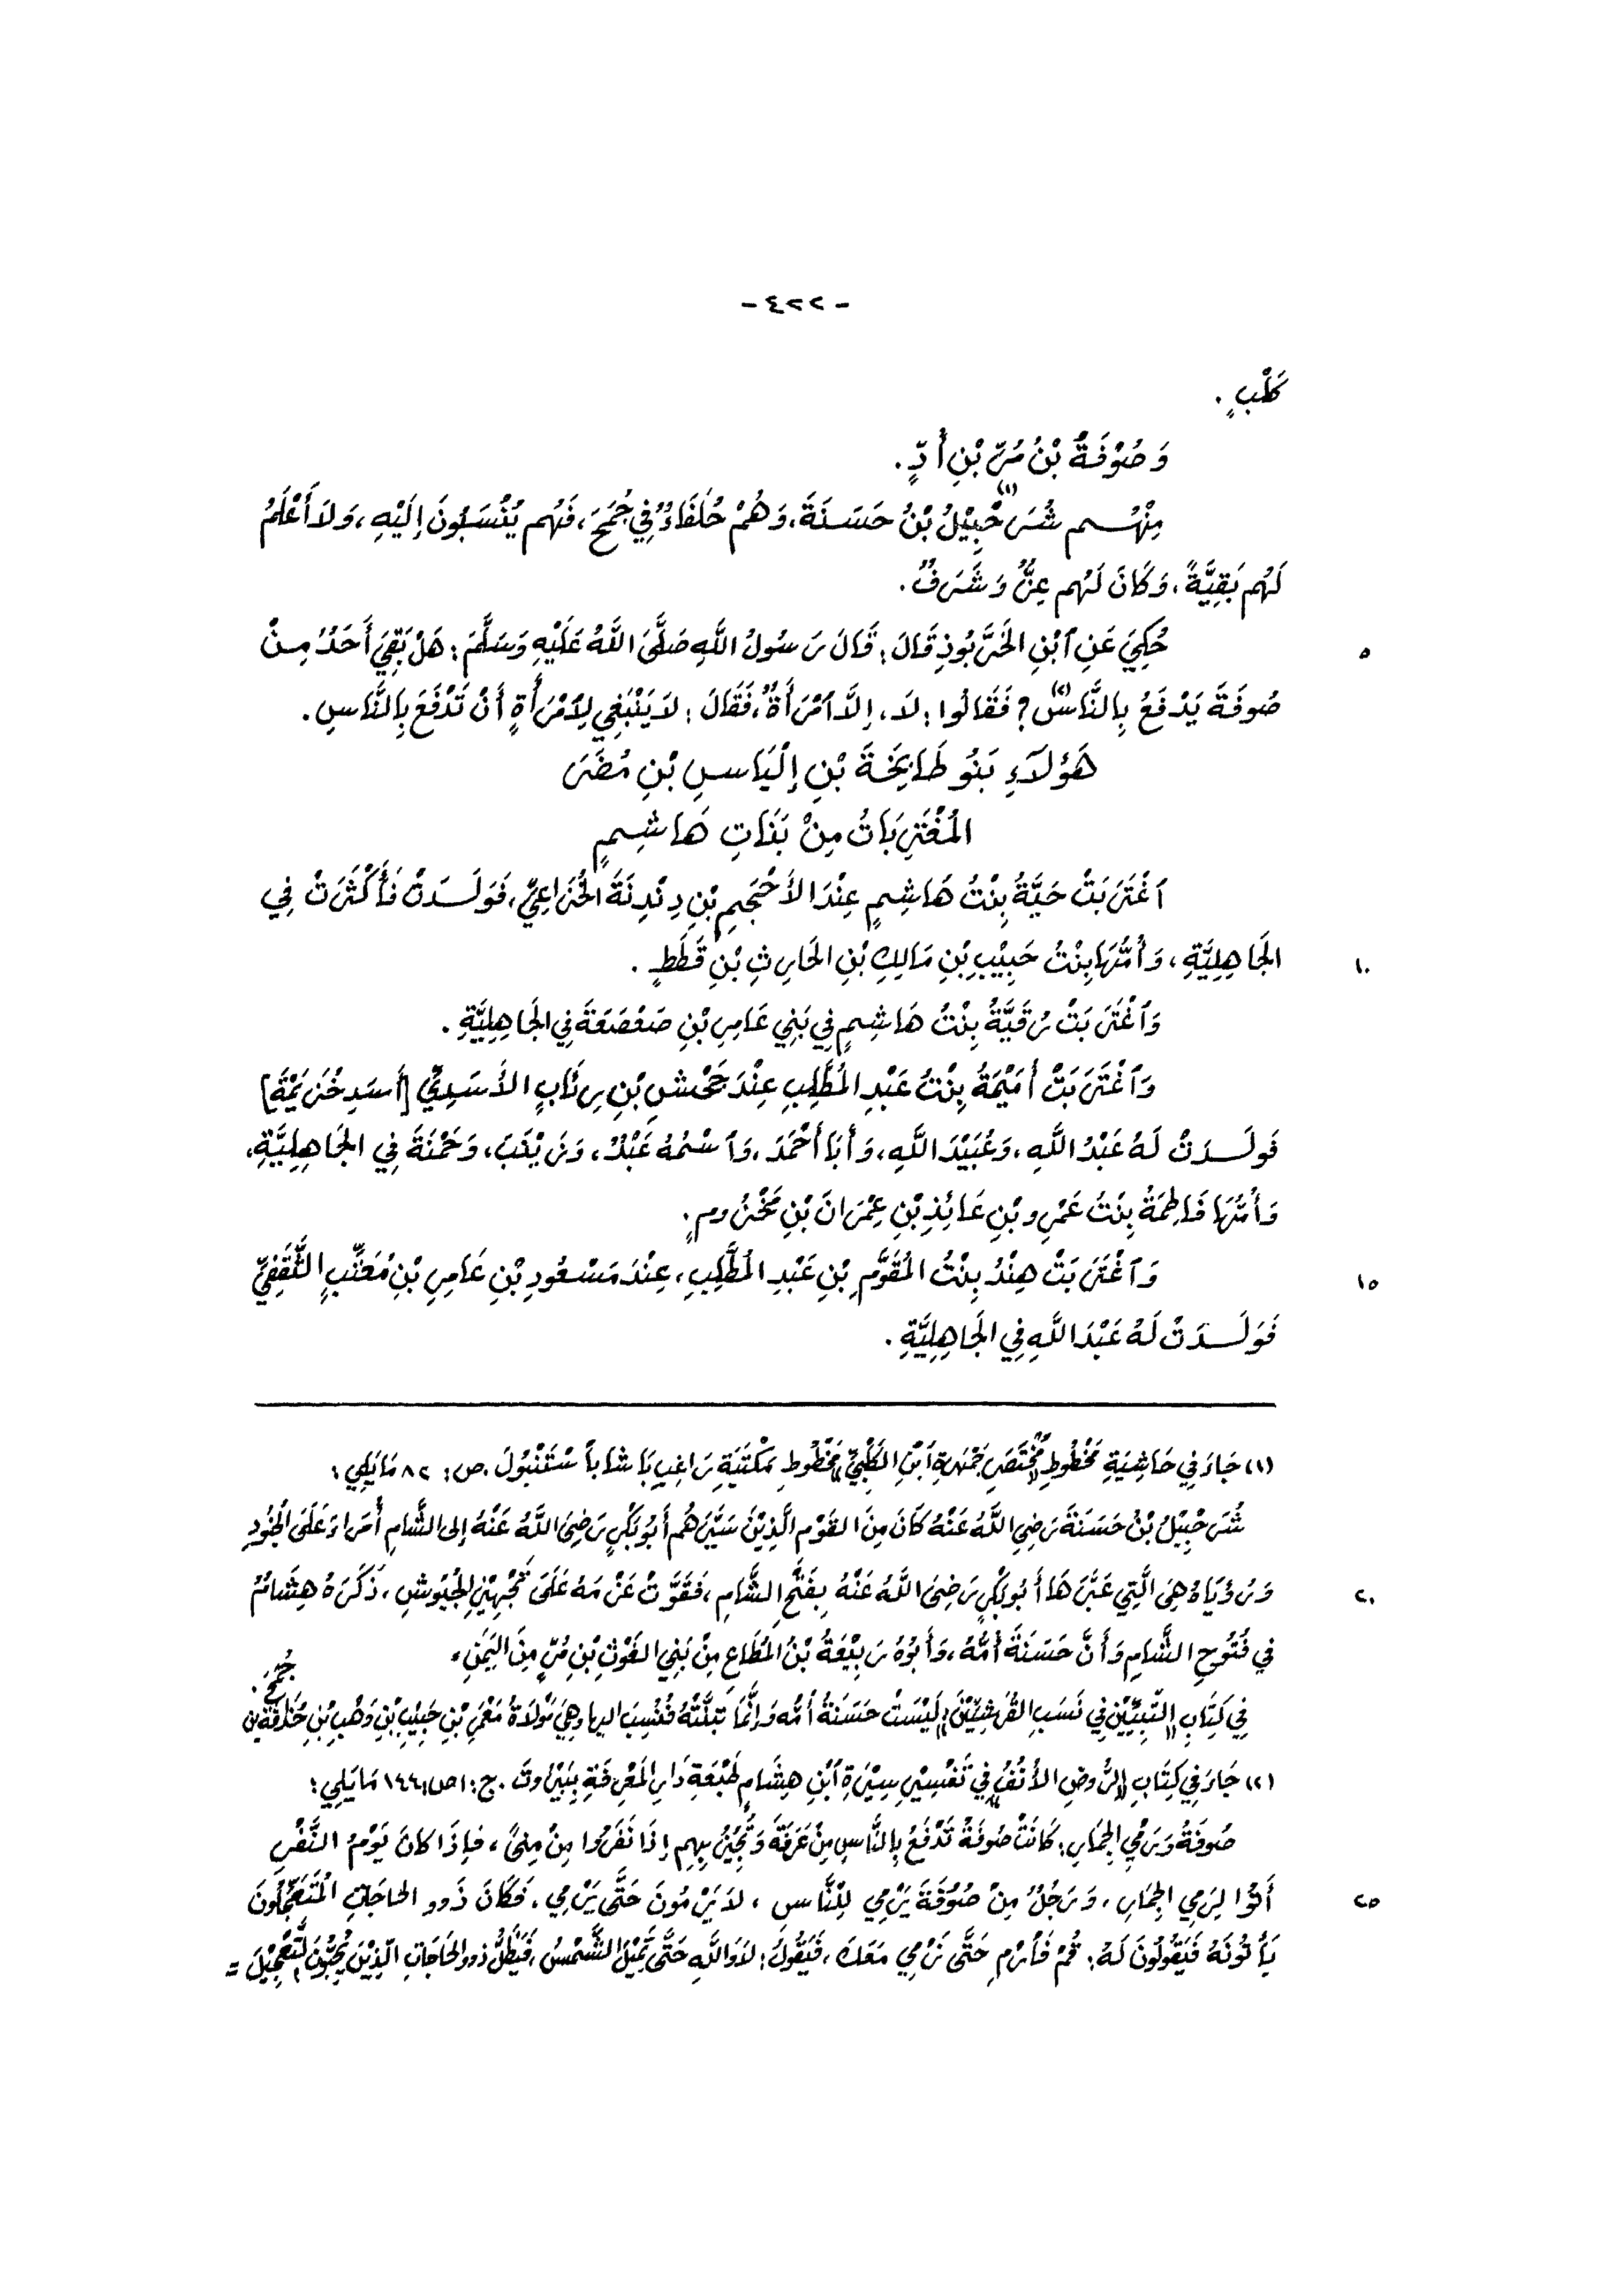 - ٤٢٢ -
كَلْبٍ .
وَصُوْفَةُ بْنُ مُرِّ بْنِ أُدٍّ .
مِنْهُم شُرَحْبِيْلُ(١) بْنُ حَسَنَةَ، وَهُمْ حُلَفَاءُ فِي جُمَحَ، فَهُم يُنْسَبُونَ إِلَيْهِ، وَلاَ أَعْلَمُ
لَهُم بَقِيَّةً، وَكَانَ لَهُم عِزٌّ وَشَرَفٌ .
٥ حُكِيَ عَنِ ٱبْنِ الخَرَّبُوذِ قَالَ: قَالَ رَسُولُ اللَّهِ صَلَّى اللَّهُ عَلَيْهِ وَسَلَّمَ: هَلْ بَقِيَ أَحَدٌ مِنْ
صُوفَةَ يَدْفَعُ بِالنَّاسِ(٢)؟ فَقَالُوا: لاَ، إِلاَّ ٱمْرَأَةٌ، فَقَالَ: لاَ يَنْبَغِي لِٱمْرَأَةٍ أَنْ تَدْفَعَ بِالنَّاسِ .
هَؤُلاَءِ بَنُو طَابِخَةَ بْنِ إِلْيَاسِ بْنِ مُضَرَ
المُغْتَرِبَاتُ مِنْ بَنَاتِ هَاشِمٍ
ٱغْتَرَبَتْ حَيَّةُ بِنْتُ هَاشِمٍ عِنْدَ الأَحْجَمِ بْنِ دِنْدِنَةَ الخُزَاعِيِّ، فَوَلَدَتْ فَأَكْثَرَتْ فِي
١٠ الجَاهِلِيَّةِ، وَأُمُّهَا بِنْتُ حَبِيْبِ بْنِ مَالِكِ بْنِ الحَارِثِ بْنِ قَطَطٍ .
وَٱغْتَرَبَتْ رُقَيَّةُ بِنْتُ هَاشِمٍ فِي بَنِي عَامِرِ بْنِ صَعْصَعَةَ فِي الجَاهِلِيَّةِ .
وَٱغْتَرَبَتْ أُمَيْمَةُ بِنْتُ عَبْدِ المُطَّلِبِ عِنْدَ جَحْشِ بْنِ رِئَابٍ الأَسَدِيِّ [أَسَدِ خُزَيْمَةَ]
فَوَلَدَتْ لَهُ عَبْدَ اللَّهِ، وَعُبَيْدَ اللَّهِ، وَأَبَا أَحْمَدَ، وَٱسْمُهُ عَبْدٌ، وَزَيْنَبَ، وَحَمْنَةَ فِي الجَاهِلِيَّةِ،
وَأُمُّهَا فَاطِمَةُ بِنْتُ عَمْرِو بْنِ عَائِذِ بْنِ عِمْرَانَ بْنِ مَخْزُومٍ .
١٥ وَٱغْتَرَبَتْ هِنْدُ بِنْتُ المُقَوَّمِ بْنِ عَبْدِ المُطَّلِبِ، عِنْدَ مَسْعُودِ بْنِ عَامِرِ بْنِ مُعَتِّبٍ الثَّقَفِيِّ
فَوَلَدَتْ لَهُ عَبْدَ اللَّهِ فِي الجَاهِلِيَّةِ .
(١) جَاءَ فِي حَاشِيَةِ مَخْطُوطِ "مُخْتَصَرِ جَمْهَرَةِ ٱبْنِ الكَلْبِيِّ" مَخْطُوطِ مَكْتَبَةِ رَاغِبِ بَاشَا بِٱسْتَنْبُولَ . ص: ٨٢ مَا يَلِي :
شُرَحْبِيْلُ بْنُ حَسَنَةَ رَضِيَ اللَّهُ عَنْهُ كَانَ مِنَ القَوْمِ الَّذِيْنَ سَيَّرَهُم أَبُو بَكْرٍ رَضِيَ اللَّهُ عَنْهُ إِلى الشَّامِ أُمَرَاءَ عَلَى الجُنُودِ
٢٠ وَرُؤْيَاهُ هِيَ الَّتِي عَبَّرَهَا أَبُو بَكْرٍ رَضِيَ اللَّهُ عَنْهُ بِفَتْحِ الشَّامِ، فَقَوَّتْ عَزْمَهُ عَلَى تَجْهِيْزِ الجُيُوشِ، ذَكَرَهُ هِشَامٌ
فِي فُتُوحِ الشَّامِ وَأَنَّ حَسَنَةَ أُمُّهُ، وَأَبُوهُ رَبِيْعَةُ بْنُ المُطَاعِ مِنْ بَنِي الغَوْثِ بْنِ مُرٍّ مِنَ اليَمَنِ،
فِي كِتَابِ "التَّبْيِيْنِ فِي نَسَبِ القُرَشِيِّيْنَ": لَيْسَتْ حَسَنَةُ أُمَّهُ وَإِنَّمَا تَبَنَّتْهُ فَنُسِبَ اليها وهِيَ مَوْلاَةُ مَعْمَرِ بْنِ حَبِيْبِ بْنِ وَهْبِ بْنِ حُذَافَةَ بن جُمَحَ .
(٢) جَاءَ فِي كِتَابِ "الرَّوضِ الأُنُفِ" فِي تَفْسِيْرِ سِيْرَةِ ٱبْنِ هِشَامٍ طَبْعَةِ دَارِ المَعْرِفَةِ بِبَيْرُوتَ . ج: ١ ص: ١٤٤ مَا يَلِي :
صُوفَةُ وَرَمْيُ الجِمَارِ: كَانَتْ صُوفَةُ تَدْفَعُ بِالنَّاسِ مِنْ عَرَفَةَ وَتُجِيْزُ بِهِم إِذَا نَفَرُوا مِنْ مِنىً، فَإِذَا كَانَ يَوْمُ النَّفْرِ
٢٥ أَتَوْا لِرَمِي الجِمَارِ، وَرَجُلٌ مِنْ صُوْفَةَ يَرْمِي لِلْنَّاسِ، لاَ يَرْمُونَ حَتَّى يَرْمِي، فَكَانَ ذَوو الحَاجَاتِ المُتَعَجِّلُونَ
يَأْتُونَهُ فَيَقُولُونَ لَهُ: قُمْ فَٱرْمِ حَتَّى نَرْمِي مَعَكَ، فَيَقُولُ: لاَ وَاللَّهِ حَتَّى تَمِيْلَ الشَّمْسُ، فَيَظَلُّ ذوو الحَاجَاتِ الَّذِيْنَ يُحِبُّونَ التَّعْجِيْلَ =